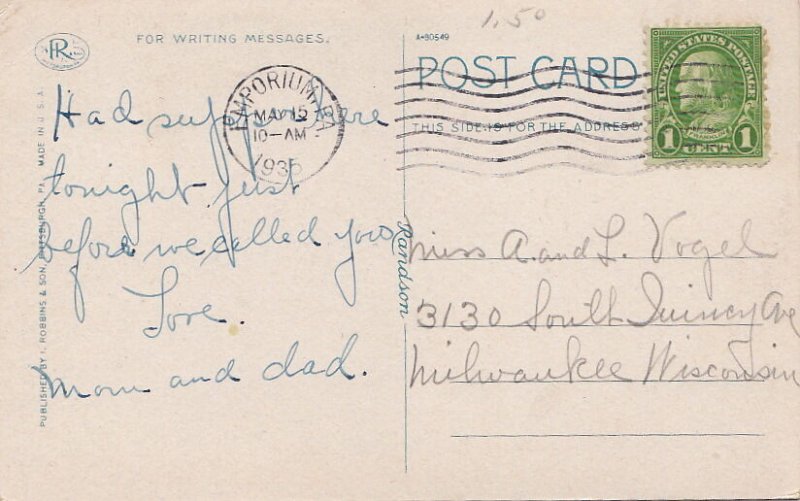 1.50
R
FOR WRITING MESSAGES.
A-90549
POST CARD
THIS SIDE IS FOR THE ADDRESS
UNITED STATES POSTAGE
1 CENT 1
EMPORIUM PA
MAY 15
10-AM
1935
Had supper here
tonight just
before we called you
Love.
mom and dad.
Randson
Miss A. and L. Vogel
3130 South Quincy Ave
Milwaukee Wisconsin
PUBLISHED BY I. ROBBINS & SON, PITTSBURGH, PA. MADE IN U.S.A.